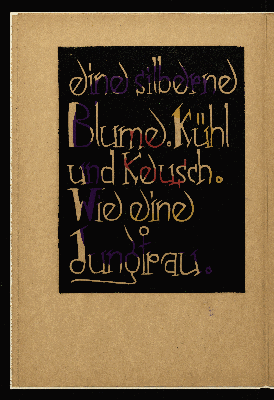 eine silberne
Blume. Kühl
und Keusch.
Wie eine
Jungfrau.